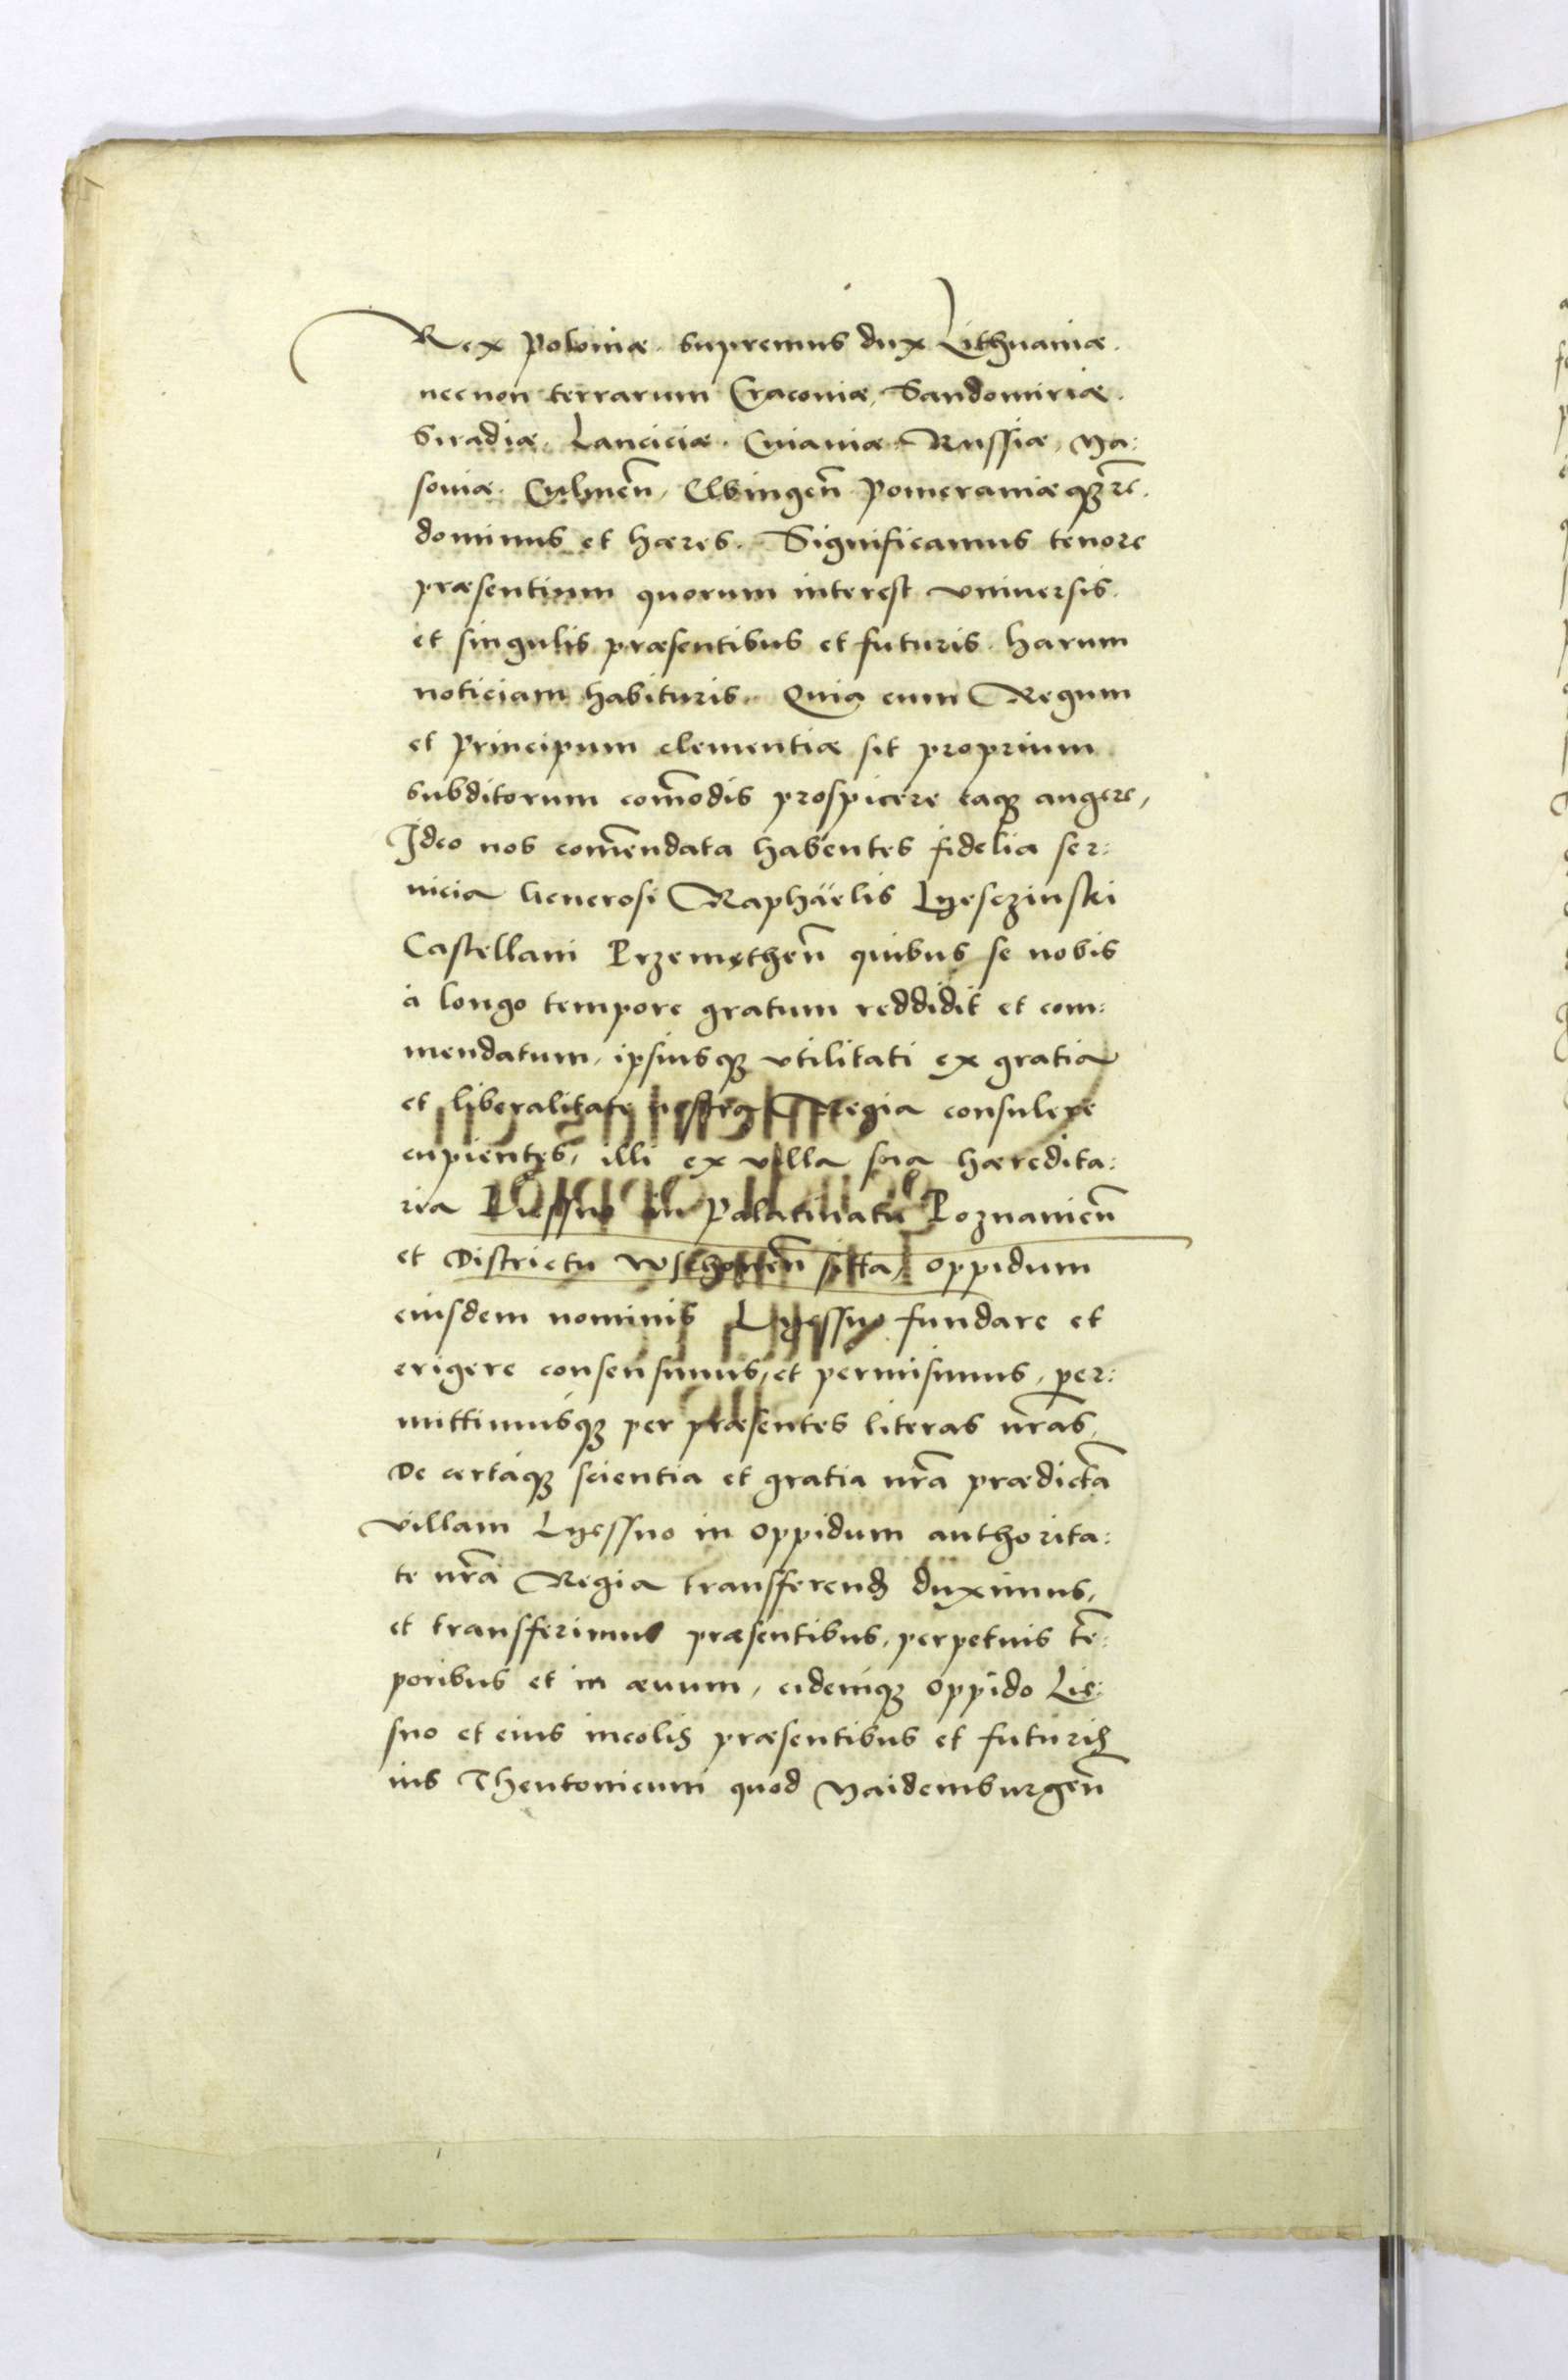 Rex Poloniæ. supremus dux Lithuaniæ.
necnon terrarum Cracoviæ, Sandomiriæ.
Siradiæ, Lanciciæ. Cuiaviæ. Russiæ, Ma:
soviæ. Culmeñ, Elbingeñ Pomeraniæq3 rc.
dominus et hæres. Significamus tenore
præsentium quorum interest vniversis.
et singulis præsentibus et futuris. harum
noticiam habituris. Quia cum Regum
et Principum clementiæ sit proprium
subditorum com̄odis prospicere eaq3 augere,
Ideo nos com̄endata habentes fidelia ser:
uicia Generosi Raphäelis Lyesczinski
Castellani Przemętheñ quibus se nobis
à longo tempore gratum reddidit et com:
mendatum, ipsiusq3 vtilitati ex gratia
et liberalitate nostra Regia consulere
cupientes, illi ex villa sua hæredita:
ria Liessno in Palatinatu Poznanieñ
et Districtu Wschoweñ sitta, oppidum
eiusdem nominis Lyessno fundare et
erigere consensimus, et permisimus, per:
mittimusq3 per præsentes literas nr̄as,
De certáq3 scientia et gratia nr̄a prædictā
villam Lyessno in oppidum authorita:
te nr̄a Regia transferend duximus,
et transferimus præsentibus, perpetuis tē:
poribus et in æuum, eidemq3 oppido Lie:
sno et eius incolis præsentibus et futuris
ius Theutonicum quod Maidemburgeñ